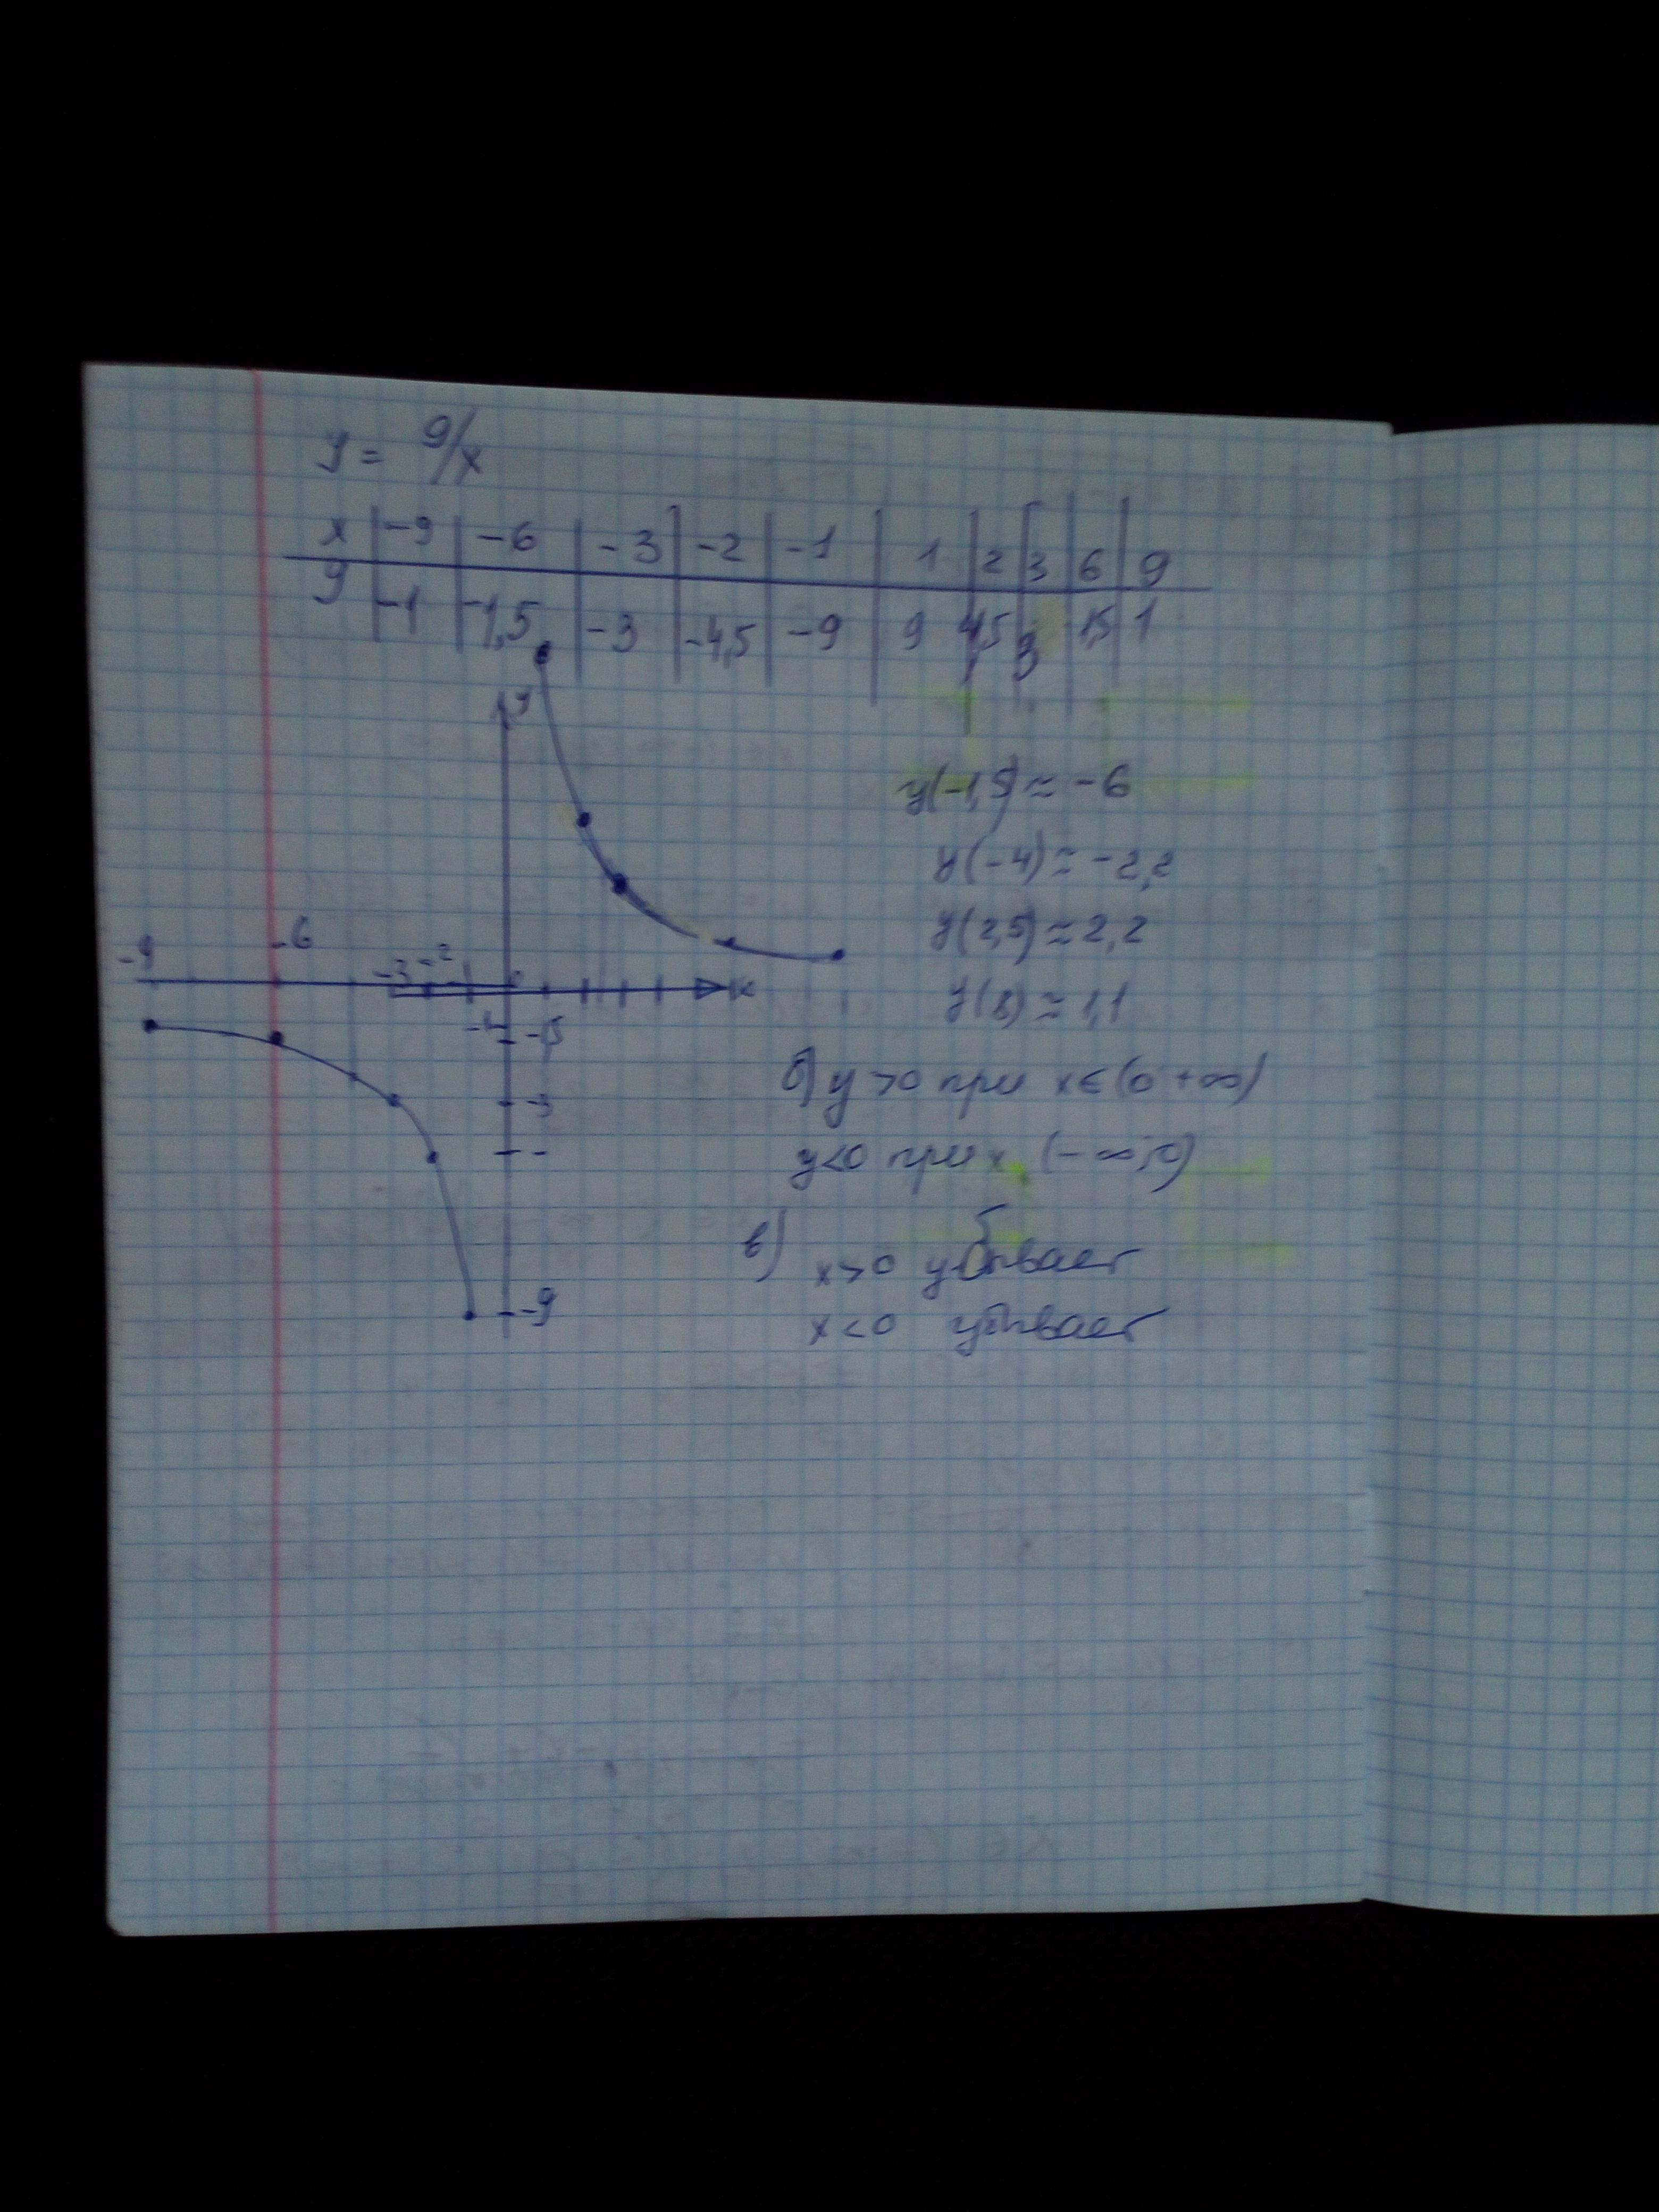 y = 9/x
x | -9 | -6 | -3 | -2 | -1 | 1 | 2 | 3 | 6 | 9
y | -1 | -1,5 | -3 | -4,5 | -9 | 9 | 4,5 | 3 | 1,5 | 1
y
y(-1,5) ≈ -6
y(-4) ≈ -2,2
y(2,5) ≈ 2,2
y(8) ≈ 1,1
-9 -6 -3 -2 0 x
-1 -1,5
-3
-
-9
б) y >0 при x∈(0 +∞)
y<0 при x (-∞;0)
в) x>0 убывает
x<0 убывает